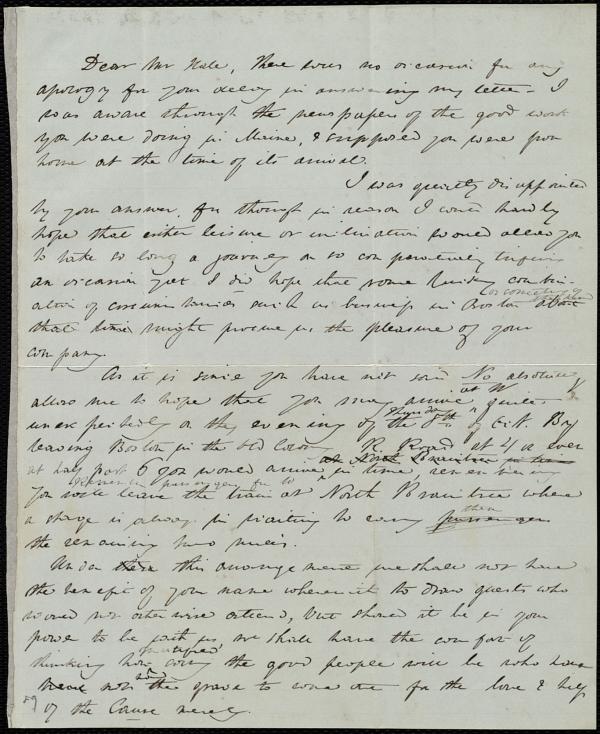 Dear Mr Hale, There was no occasion for any
apology for your delay in answering my letter - I
was aware through the newspapers of the good work
you were doing in Maine, & supposed you were from
home at the time of its arrival.
I was greatly disappointed
by your answer, for though in reason I could hardly
hope that either leisure or inclination would allow you
to take so long a journey on so comparatively trifling
an occasion yet I did hope that some lucky combin-
ation of circumstances such as business in Boston about
or something of that kind
that time might procure us the pleasure of your
company.
As it is since you have not said No absolutely
allow me to hope that you may arrive at W quite
unexpectedly on the evening of Thursday the 8th of Oct. By
leaving Boston in the Old Colony R. Road at 4 or even
at half past 6 you would arrive in time remembering
you were to leave the train at North Braintree where
a stage is always in waiting to carry passengers then
the remaining two miles.
Under this arrangement we shall not have
the benefit of your name wherewith to draw guests who
would not otherwise attend, but should it be in your
power to be with us we shall have the comfort of
thinking how mortified the good people will be who have
not had the grace to come out for the love & help
of the Cause merely.
89